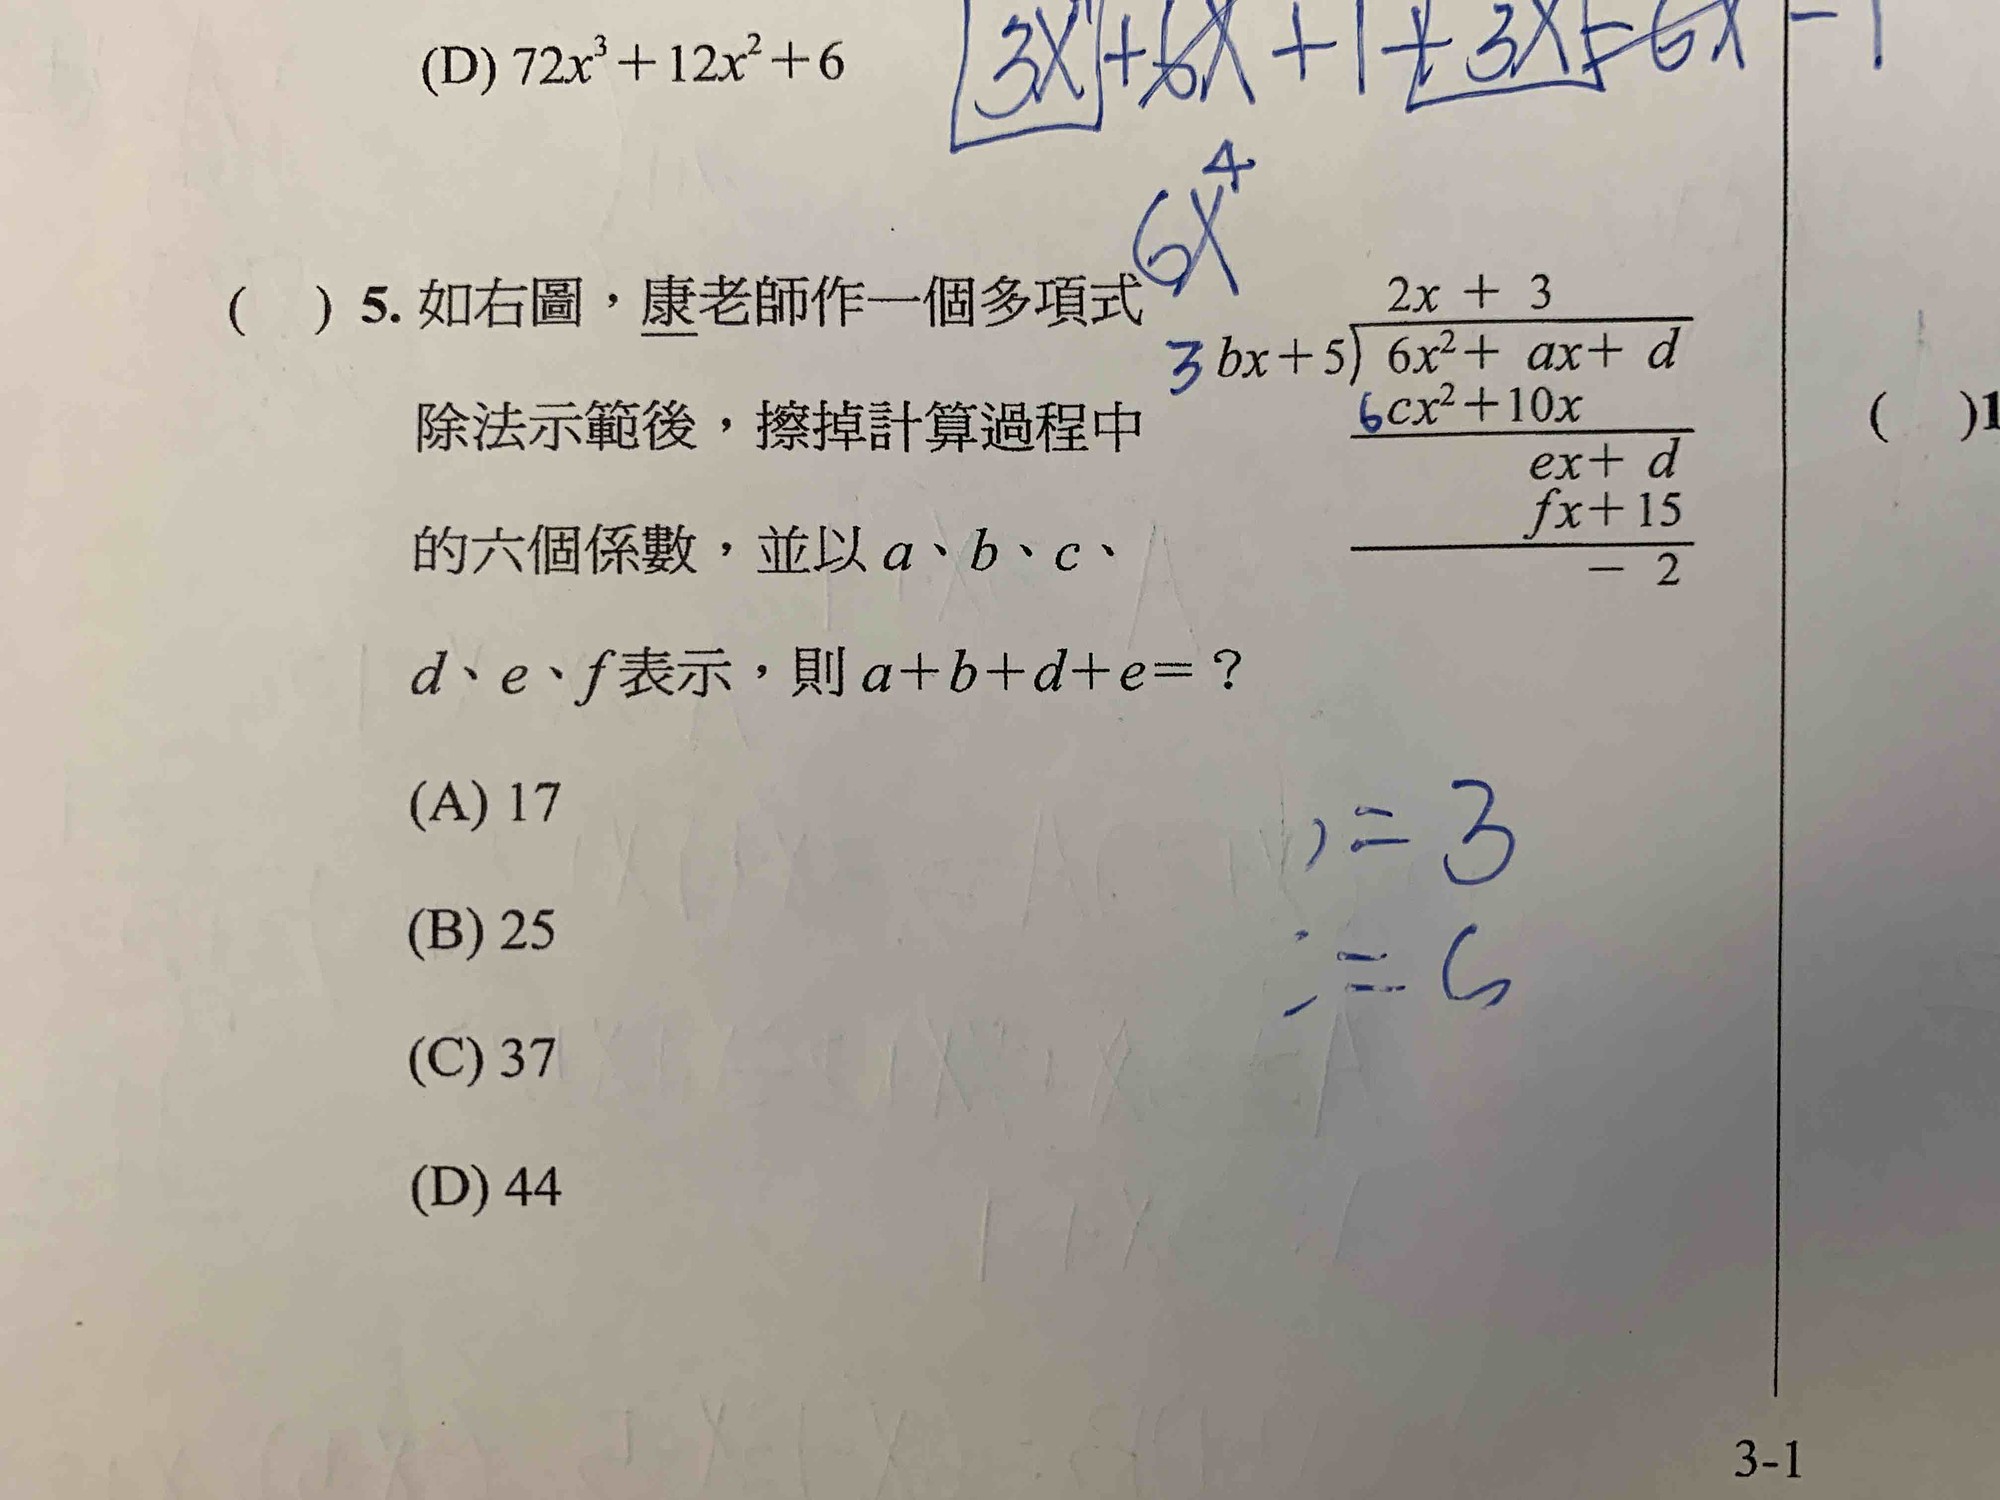 (D) 72x³+12x²+6
3x +6x +1+3x=6x-1
6x⁴
(　) 5. 如右圖，康老師作一個多項式
除法示範後，擦掉計算過程中
的六個係數，並以 a、b、c、
d、e、f 表示，則 a+b+d+e=？
2x + 3
3 bx+5) 6x²+ ax+ d
6 cx²+10x
ex+ d
fx+15
- 2
(A) 17
(B) 25
(C) 37
(D) 44
=3
=6
(　)1
3-1